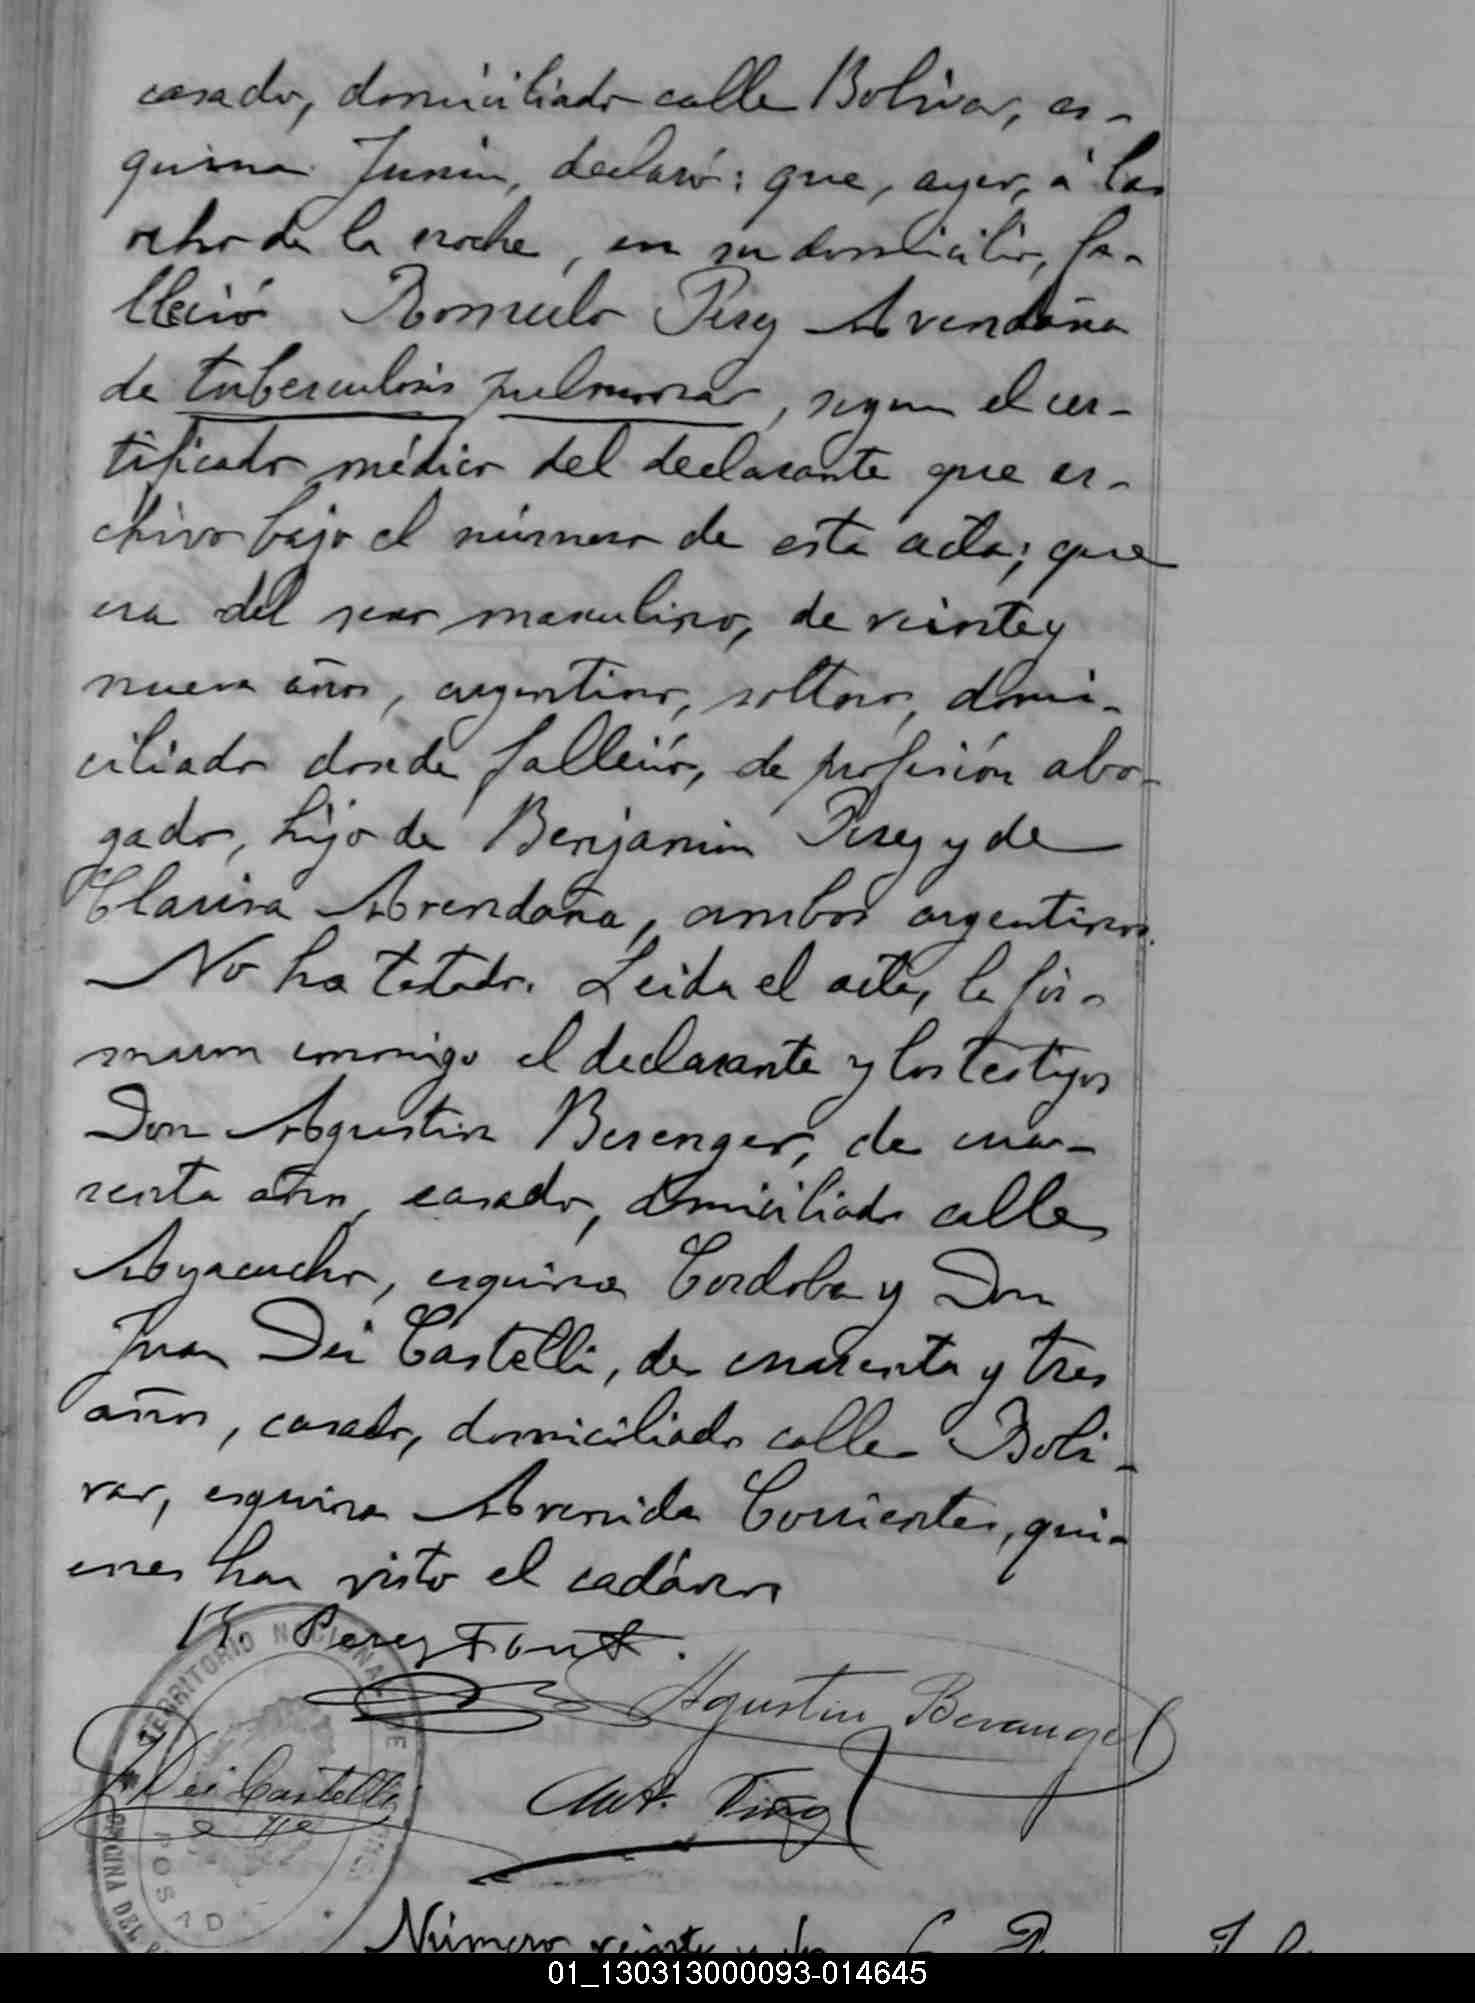 casado, domiciliado calle Bolívar, es-
quina Junin, declaró: que, ayer, á las
ocho de la noche, en su domicilio, fa-
lleció Romulo Perez Avendaña
de tuberculosis pulmonar, segun el cer-
tificado médico del declarante que ar-
chivo bajo el número de esta acta; que
era del sexo masculino, de veinte y
nueve años, argentino, soltero, domi-
ciliado donde falleció, de profesión abo-
gado, hijo de Benjamin Perez y de
Clarisa Avendaña, ambos argentinos.
No ha testado. Leida el acta, la fir-
maron conmigo el declarante y los testigos
Don Agustin Berenger, de cua-
renta años, casado, domiciliado calle
Ayacucho, esquina Cordoba y Don
Juan Dei Castelli, de cuarenta y tres
años, casado, domiciliado calle Boli-
var, esquina Avenida Corrientes, qui-
enes han visto el cadáver
R. Perez Font.
Agustin Beranger
J. Dei Castelli
Ant.
TERRITORIO NACIONAL DE
OFICINA DEL
POSAD
Número veinte y
01_130313000093-014645